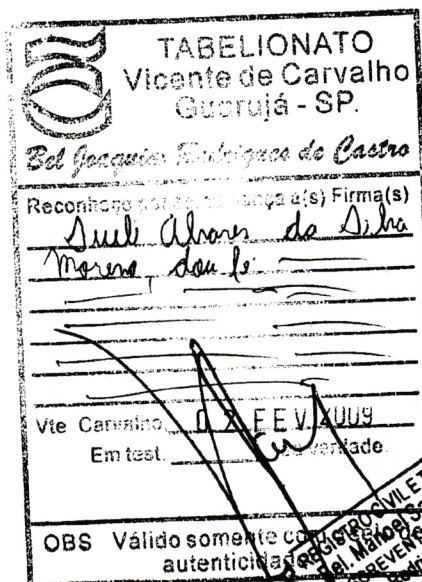 TABELIONATO
Vicente de Carvalho
Guarujá - SP.
Bel Joaquim Rodrigues de Castro
Reconheço por semelhança a(s) Firma(s)
Sueli Alvares da Silva
Moreno dou fé
Vte Carvalho, 02 FEV 2009
Em test. da verdade.
OBS Válido somente com
autenticidade
REGISTRO CIVIL E T
Bel. Manoel